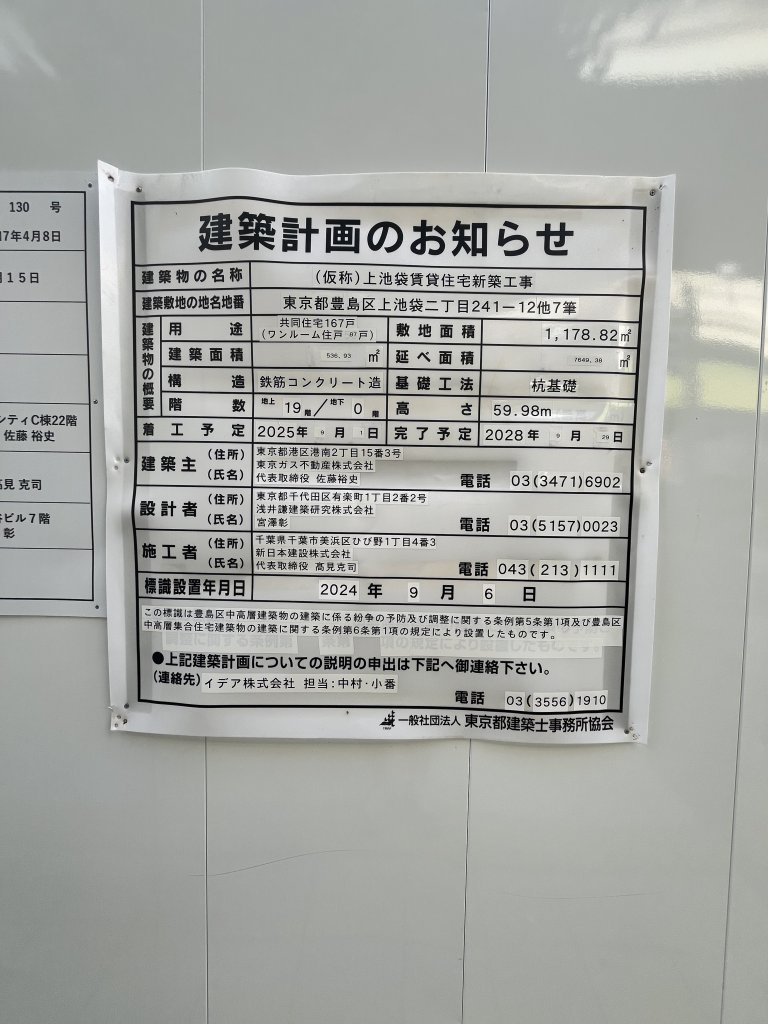 130 号
17年4月8日
月15日
シティC棟22階
佐藤 裕史
髙見 克司
谷ビル7階
彰
建築計画のお知らせ
建築物の名称 (仮称)上池袋賃貸住宅新築工事
建築敷地の地名地番 東京都豊島区上池袋二丁目241ー12他7筆
建築物の概要
用途 共同住宅167戸
(ワンルーム住戸 97戸) 敷地面積 1,178.82㎡
建築面積 536.93 ㎡ 延べ面積 7649.38 ㎡
構造 鉄筋コンクリート造 基礎工法 杭基礎
階数 地上 19階/地下 0階 高さ 59.98m
着工予定 2025年 9月 1日 完了予定 2028年 9月 29日
建築主 (住所) 東京都港区港南2丁目15番3号
東京ガス不動産株式会社
(氏名) 代表取締役 佐藤裕史 電話 03(3471)6902
設計者 (住所) 東京都千代田区有楽町1丁目2番2号
浅井謙建築研究株式会社
(氏名) 宮澤彰 電話 03(5157)0023
施工者 (住所) 千葉県千葉市美浜区ひび野1丁目4番3
新日本建設株式会社
(氏名) 代表取締役 髙見克司 電話 043(213)1111
標識設置年月日 2024 年 9 月 6 日
この標識は豊島区中高層建築物の建築に係る紛争の予防及び調整に関する条例第5条第1項及び豊島区
中高層集合住宅建築物の建築に関する条例第6条第1項の規定により設置したものです。
●上記建築計画についての説明の申出は下記へ御連絡下さい。
(連絡先) イデア株式会社 担当:中村・小番
電話 03(3556)1910
一般社団法人 東京都建築士事務所協会